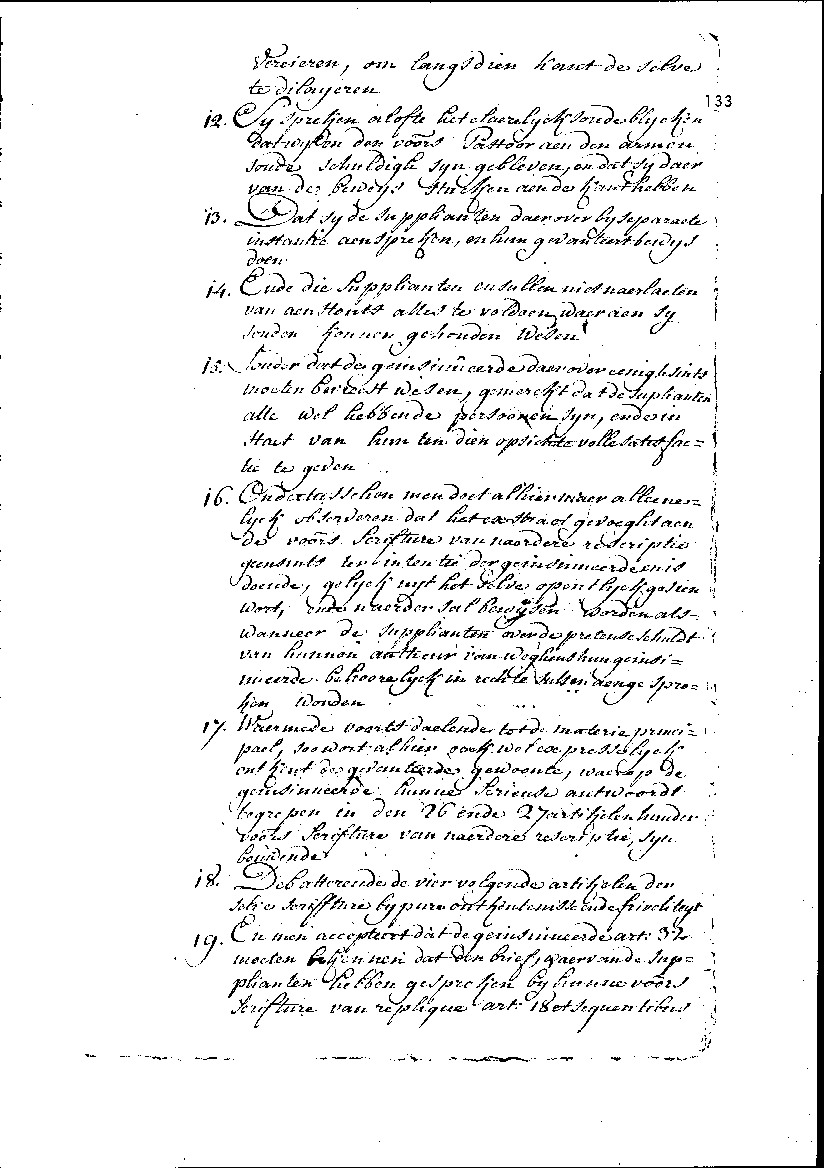 Vercieren, om langs dien kant de selve
te dilayeren
133
12. Sy spreken alofte het claerelyck soude blycken
dat wylen den voors Pastoor aen den armen
soude schuldigh syn gebleven, en dat sy daer
van de bewys stucken aen de hant hebben
13. Dat sy de supplianten daer over by separaete
instantie aenspreken, en hun gevanteert bewys
doen
14. Ende die Supplianten en sullen niet naerlaeten
van aenstonts alles te voldoen, waer aen sy
souden konnen gehouden wesen
15. Sonder dat de geinsinueerde daer over eenighsints
moeten bevreest wesen, gemerckt dat de suplianten
alle wel hebbende persoonen syn, ende in
staet van hun ten dien opsichte volle satisfac=
tie te geven
16. Ondertusschen men doet alhier maer alleene=
lyck observeren dat het extract gevoeght aen
de voors Scrifture van naerdere rescriptie
geensints ten intentie der geinsinueerde en is
doende, gelyck uyt het selve opentlyck gesien
wort, ende naerder sal bewysen worden als=
wanneer de supplianten over de pretense schuldt
van hunnen autheur van weghens hun geinsi=
nueerde behoorelyck in rechte sullen aengespro=
ken worden
17. Waermede voorts daelende tot de materie princi=
pael, soo wort alhier oock wel expresselyck
ontkent de gevanteerde gewoonte, waer op de
geinsinueerde hunne serieuse antwoordt
begrepen in den 26 ende 27 artikelen hunder
voors Scrifture van naerdere rescriptie, syn
bouwende
18. Debatterende de vier volgende artikelen der
selve scriffture by pure ontkentenisse ende frivoliteyt
19. En men accepteert dat de geinsinueerde art: 32
moeten bekennen dat den brief, waer van de sup=
plianten hebben gesproken by hunne voors
Scrifture van replique art: 18 et sequentibus